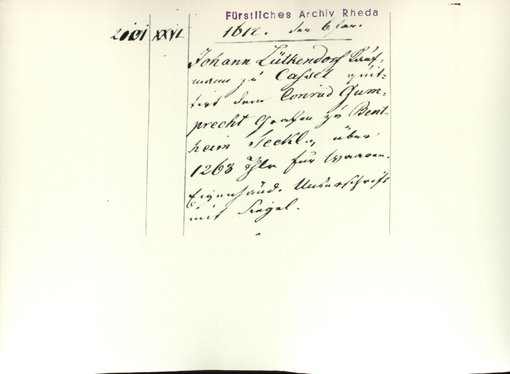 Fürstliches Archiv Rheda
XXVI 1612. den 6 Jan.
Johann Lütkendorf Kauf-
mann zu Cassel quit-
tirt dem Conrad Gum-
precht Grafen zu Bent-
heim Teckl., über
1268 Thlr für Waaren.
Eigenhänd. Unterschrift
mit Siegel.